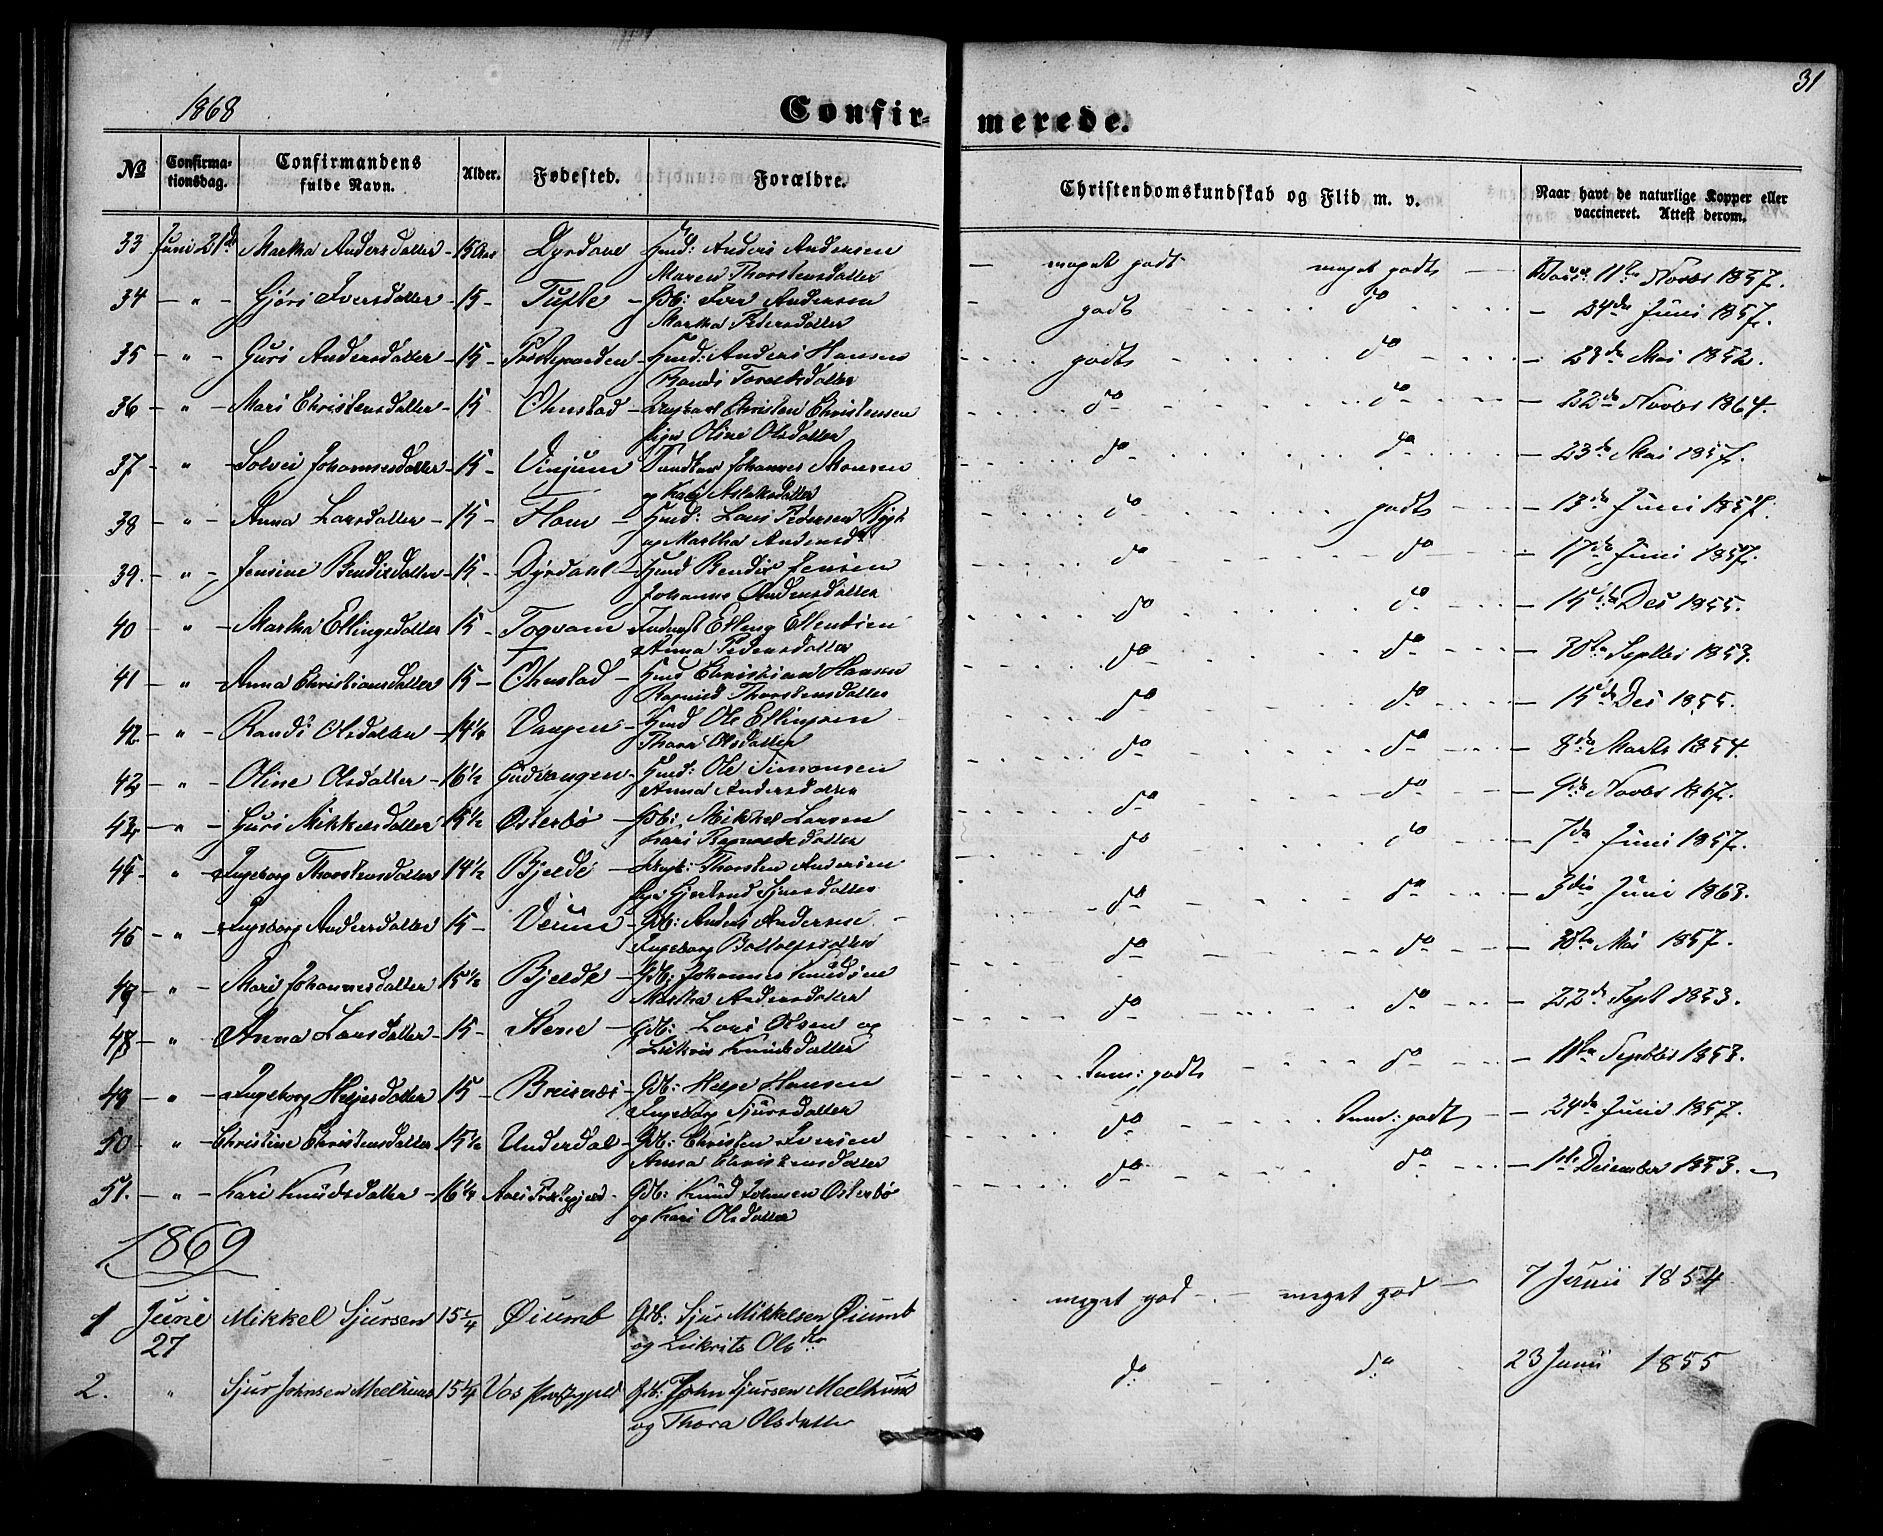 31
1868
Confirmerede.
No Confirmationsdag. Confirmandens fulde Navn. Alder. Fødested. Forældre. Christendomskundskab og Flid m. v. Naar havt de naturlige Kopper eller vaccineret. Attest derom.
33 Juni 21de Martha Andersdatter - 15 Aar Dyrdahl Hmd: Anders Andersen - meget godt meget godt - 11te Novbr 1857.
Maren Thorstensdatter
34 - " - Gjøri Iversdatter - 15 - Tufte - Gb: Iver Andersen godt do - 24de Juni 1857.
Martha Pedersdatter
35 - " - Guri Andersdatter - 15 - Hmd: Anders Hansen godt do - 29de Mai 1852.
Randi
36 - " - Mari Christensdatter - 15 Ohnstad - Christen Christensen do do - 22de Novbr 1864.
Pige Oline Olsdatter
37 - " - Solvei Johannesdatter - 15 - Vinjum Johannes Monsen do do - 23de Mai 1857.
og Kari Aslaksdatter
38 - " - Anna Larsdatter - 15 - Flom - Hmd: Lars Pedersen do godt - 13de Juni 1857.
og Martha Andersdr
39. - " - Jensine Bendixdatter - 15 - Dyrdahl - Hmd Bendix Jensen do do - 17de Juni 1857.
Johanne Andersdatter
40 - " - Martha Ellingsdatter - 15 - Elling do do - 15de Des 1855.
Anna Pedersdatter
41 - " - Anna Christiansdatter 15 - Ohnstad - Hmd Christian Hansen do do - 30te Septbr 1853.
Ragnild Thorstensdatter
42 - " - Randi Olsdatter - 14 1/4 Vangen - Hmd Ole Ellingsen do do - 15de Des 1855.
Thora Olsdatter
42 - " - Oline Olsdatter - 16 1/2 Gudvangen - Hmd: Ole Simonsen do do - 8de Marts 1854.
Anna Andersdatter
43 - " - Guri Mikkelsdatter 15 1/2 Østerbø - Gb: Mikkel Larsen do do - 9de Novbr 1867.
Kari Ragnvaldsdatter
45 - " - Ingeborg Thorstensdatter 14 1/2 Bjelde - Thorsten Andersen do do - 7de Juni 1857.
Pige Gjertrud Sjursdatter
46 - " - Ingeborg Andersdatter 15 - Gb: Anders Andersen - do do - 3die Juni 1863.
Ingeborg Botolfsdatter
47 - " - Mari Johannesdatter 15 1/2 Bjelde - Gb: Johannes Knudsen do do - 30te Mai 1857.
Martha Andersdatter
48 - " - Anna Larsdatter - 15 - Stene - Gb: Lars Olsen og do do - 22de Sept 1853.
Knudsdatter
49 - " - Ingeborg Helgesdatter 15 - Gb: Helge Hansen Tem: godt - do - 11te Septbr 1853.
Ingeborg Sjursdatter
50 - " - Christine Christensdatter 15 1/2 Underdal - Gb: Christen Iversen do Tem: godt - - 24de Juni 1857.
Anna Christensdatter
51. - " - Kari Knudsdatter - 16 1/4 - Gb: Knud Johnsen Østerbø do do - 1ste December 1853.
og Kari Olsdatter
1869
1 June Mikkel Sjursen 15 1/4 Øiumb Gb: Sjur Mikkelsen Øiumb meget god - meget god - 7 Junii 1854
27 og Olsdtr
2. " Sjur Johnsen Meelhuus 15 1/4 Vos Præstegjeld Gb: John Sjursen Meelhuus do do 23 Junii 1855
og Thora Olsdatter